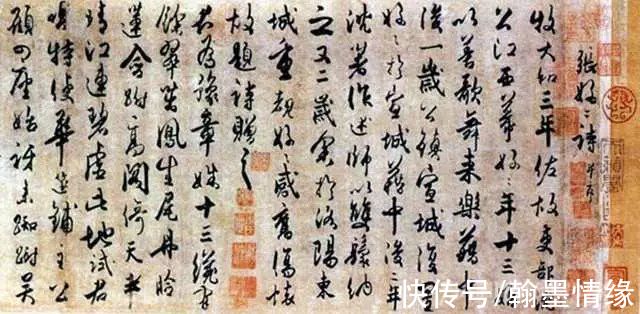 張好〻詩并序
牧大和三年佐故吏部沈
公江西幕好〻年十三始
以善歌舞來樂籍中
後一歲公鎮宣城復置
好〻於宣城籍中後二年
沈著作述師以雙鬟納
之又二歲余於洛陽東
城重覩好〻感舊傷懷
故題詩贈之
君為豫章姝十三纔有
餘翠茁鳳生尾丹臉
蓮含跗高閣倚天半
晴江連碧虛此地試君
唱特使華筵鋪主公
顧四座始訝來踟躕吳
快传号/翰墨情缘